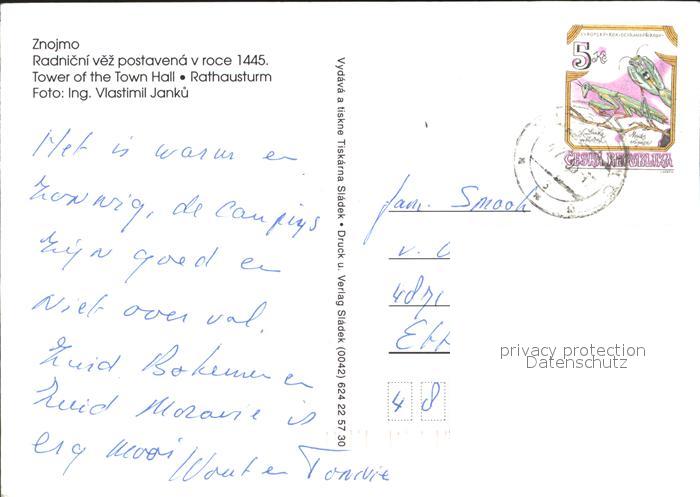 Znojmo
Radniční věž postavená v roce 1445.
Tower of the Town Hall • Rathausturm
Foto: Ing. Vlastimil Janků
Het is warm en
zonnig, de campings
zijn goed en
niet over vol.
Zuid Bohemen en
Zuid Moravie is
erg mooi
Wout en Tonnie
Vydává a tiskne Tiskárna Sládek • Druck u. Verlag Sládek (0042) 624 22 57 30
5 Kč
ČESKÁ REPUBLIKA
Fam. Smook
v. C
487
Ett
4 8
privacy protection
Datenschutz